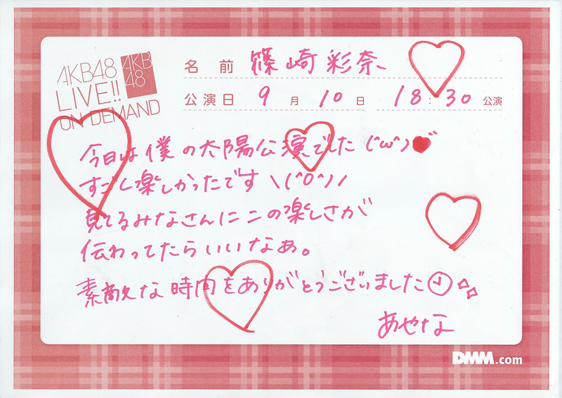 AKB48
LIVE!!
ON DEMAND
AKB
48
名前 篠崎彩奈
公演日 9月10日 18:30公演
今日は僕の太陽公演でした(´ω`)♥
すごく楽しかったです\(^o^)/
見てるみなさんにこの楽しさが
伝わってたらいいなぁ。
素敵な時間をありがとうございました
あやな
DMM.com